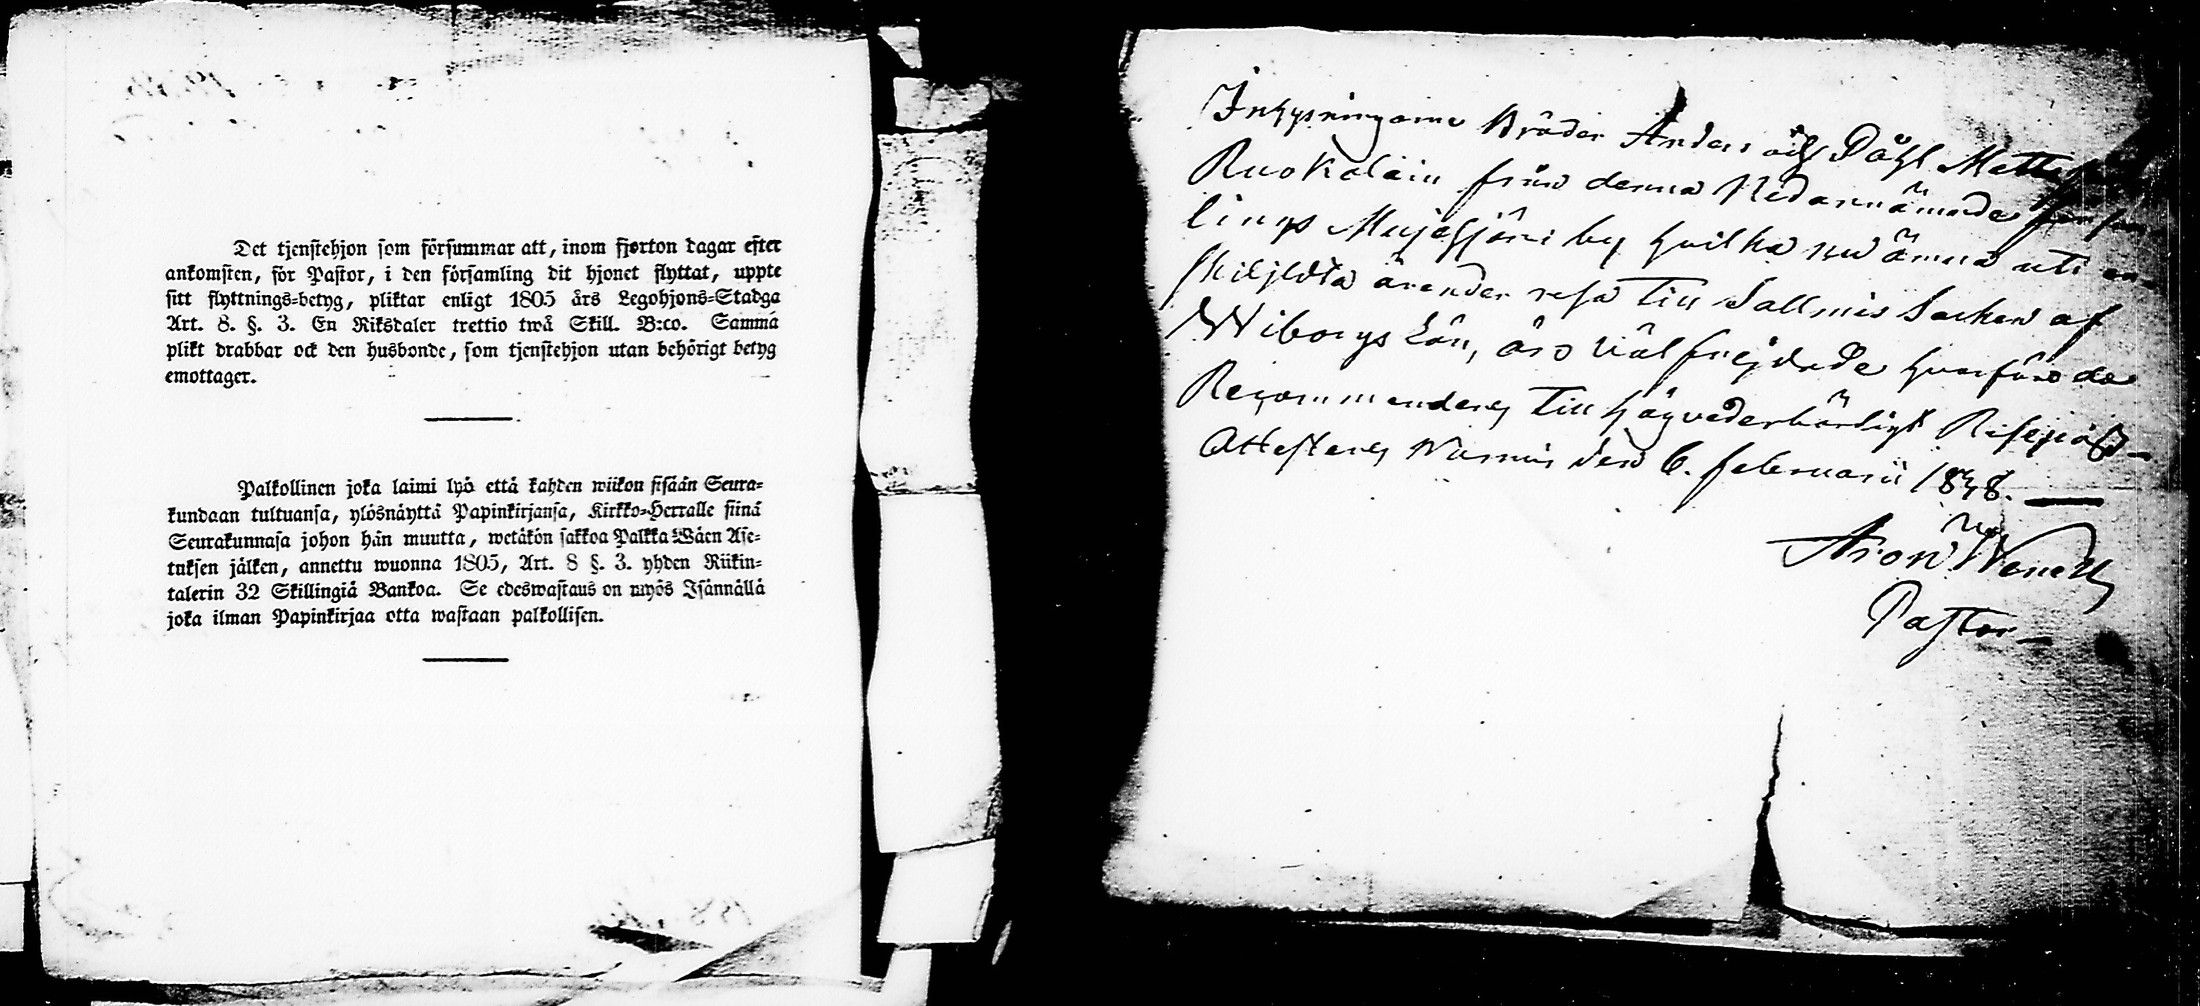 Det tjenstehjon som försummar att, inom fjorton dagar efter
ankomsten, för Pastor, i den församling dit hjonet flyttat, uppte
sitt flyttnings=betyg, pliktar enligt 1805 års Legohjons=Stadga
Art. 8. §. 3. En Riksdaler trettio twå Skill. B:co. Samma
plikt drabbar ock den husbonde, som tjenstehjon utan behörigt betyg
emottager.
Palkollinen joka laimi lyö että kahden wiikon sisään Seura=
kundaan tultuansa, ylösnäyttä Papinkirjansa, Kirkko=Herralle siinä
Seurakunnasa johon hän muutta, wetäkön sakkoa Palkka=Wäen Ase=
tuksen jälken, annettu wuonna 1805, Art. 8 §. 3. yhden Riikin=
talerin 32 Skillingiä Bankoa. Se edeswastaus on myös Isännällä
joka ilman Papinkirjaa otta wastaan palkollisen.
Inhysningarne Bröder Anders och Påhl
Ruokolain från denna Nedannämnde
lings by hvilka nu ämna uti en-
skiljdta ärender resa till Sallmis Socken af
Wiborgs Län, äro väl frejdade hvarföre de
Recommenderas till högvederbörligt
Attesteras den 6. februarii 1838.
Aron
Pastor